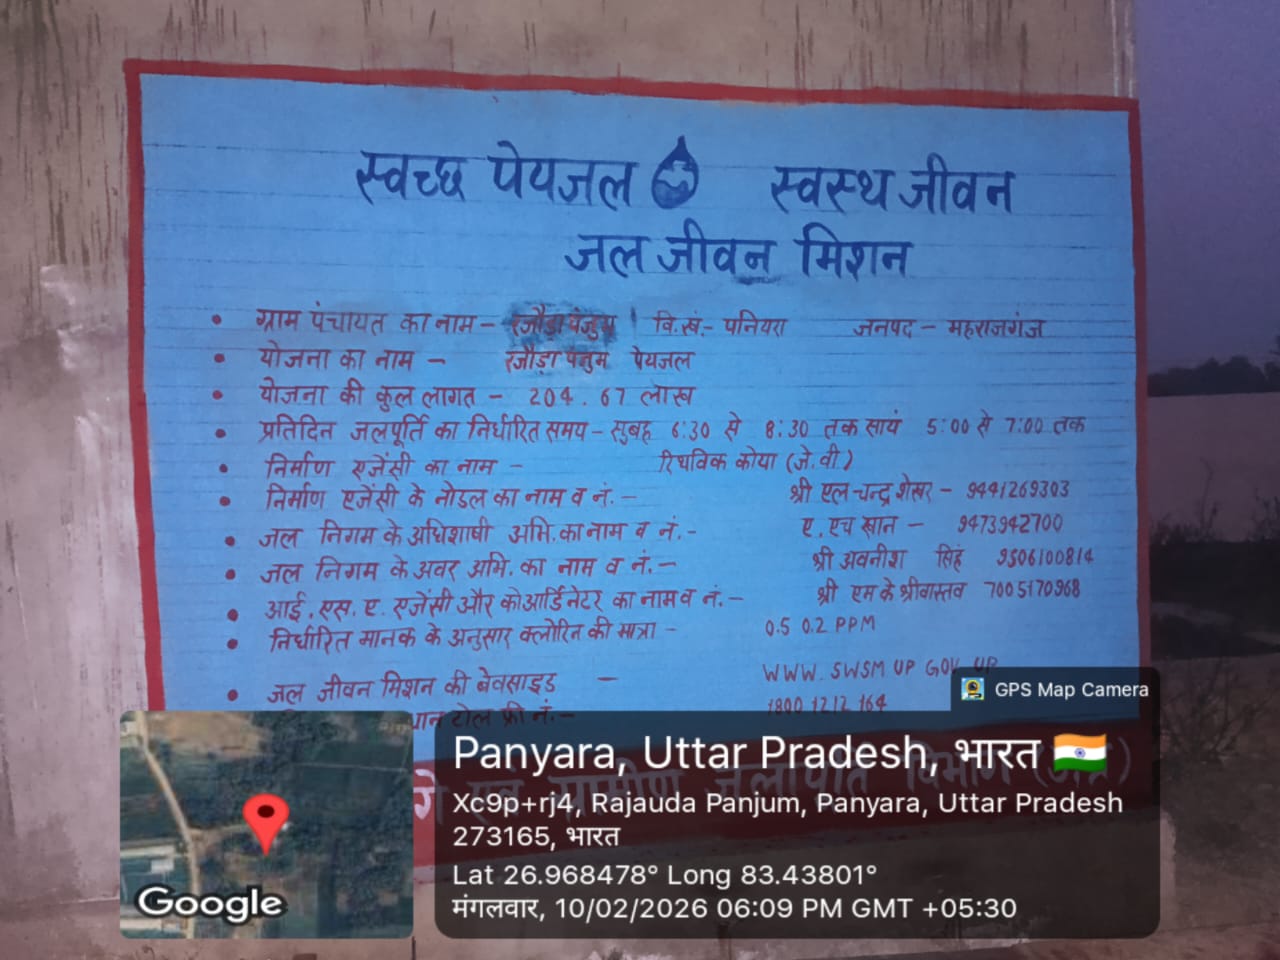 स्वच्छ पेयजल स्वस्थ जीवन
जल जीवन मिशन
• ग्राम पंचायत का नाम – रजौड़ा पंजुम । वि.खं.- पनियरा जनपद – महराजगंज
• योजना का नाम – रजौड़ा पंजुम पेयजल
• योजना की कुल लागत – 204.67 लाख
• प्रतिदिन जलपूर्ति का निर्धारित समय – सुबह 6:30 से 8:30 तक सायं 5:00 से 7:00 तक
• निर्माण एजेंसी का नाम – रिथविक कोया (जे.वी)
• निर्माण एजेंसी के नोडल का नाम व नं.– श्री एल चन्द्र शेखर – 9441269303
• जल निगम के अधिशाषी अभि.का नाम व नं.– ए.एच खान – 9473942700
• जल निगम के अवर अभि. का नाम व नं.– श्री अवनीश सिंह 9506100814
• आई.एस.ए. एजेंसी और कोआर्डिनेटर का नाम व नं.– श्री एम के श्रीवास्तव 7005170968
• निर्धारित मानक के अनुसार क्लोरिन की मात्रा – 0.5 0.2 PPM
• जल जीवन मिशन की बेवसाइड – WWW. SWSM UP GOV UP
टोल फ्री नं.– 1800 1212 164
एवं ग्रामीण जलापूर्ति विभाग
GPS Map Camera
Google
Panyara, Uttar Pradesh, भारत 🇮🇳
Xc9p+rj4, Rajauda Panjum, Panyara, Uttar Pradesh
273165, भारत
Lat 26.968478° Long 83.43801°
मंगलवार, 10/02/2026 06:09 PM GMT +05:30